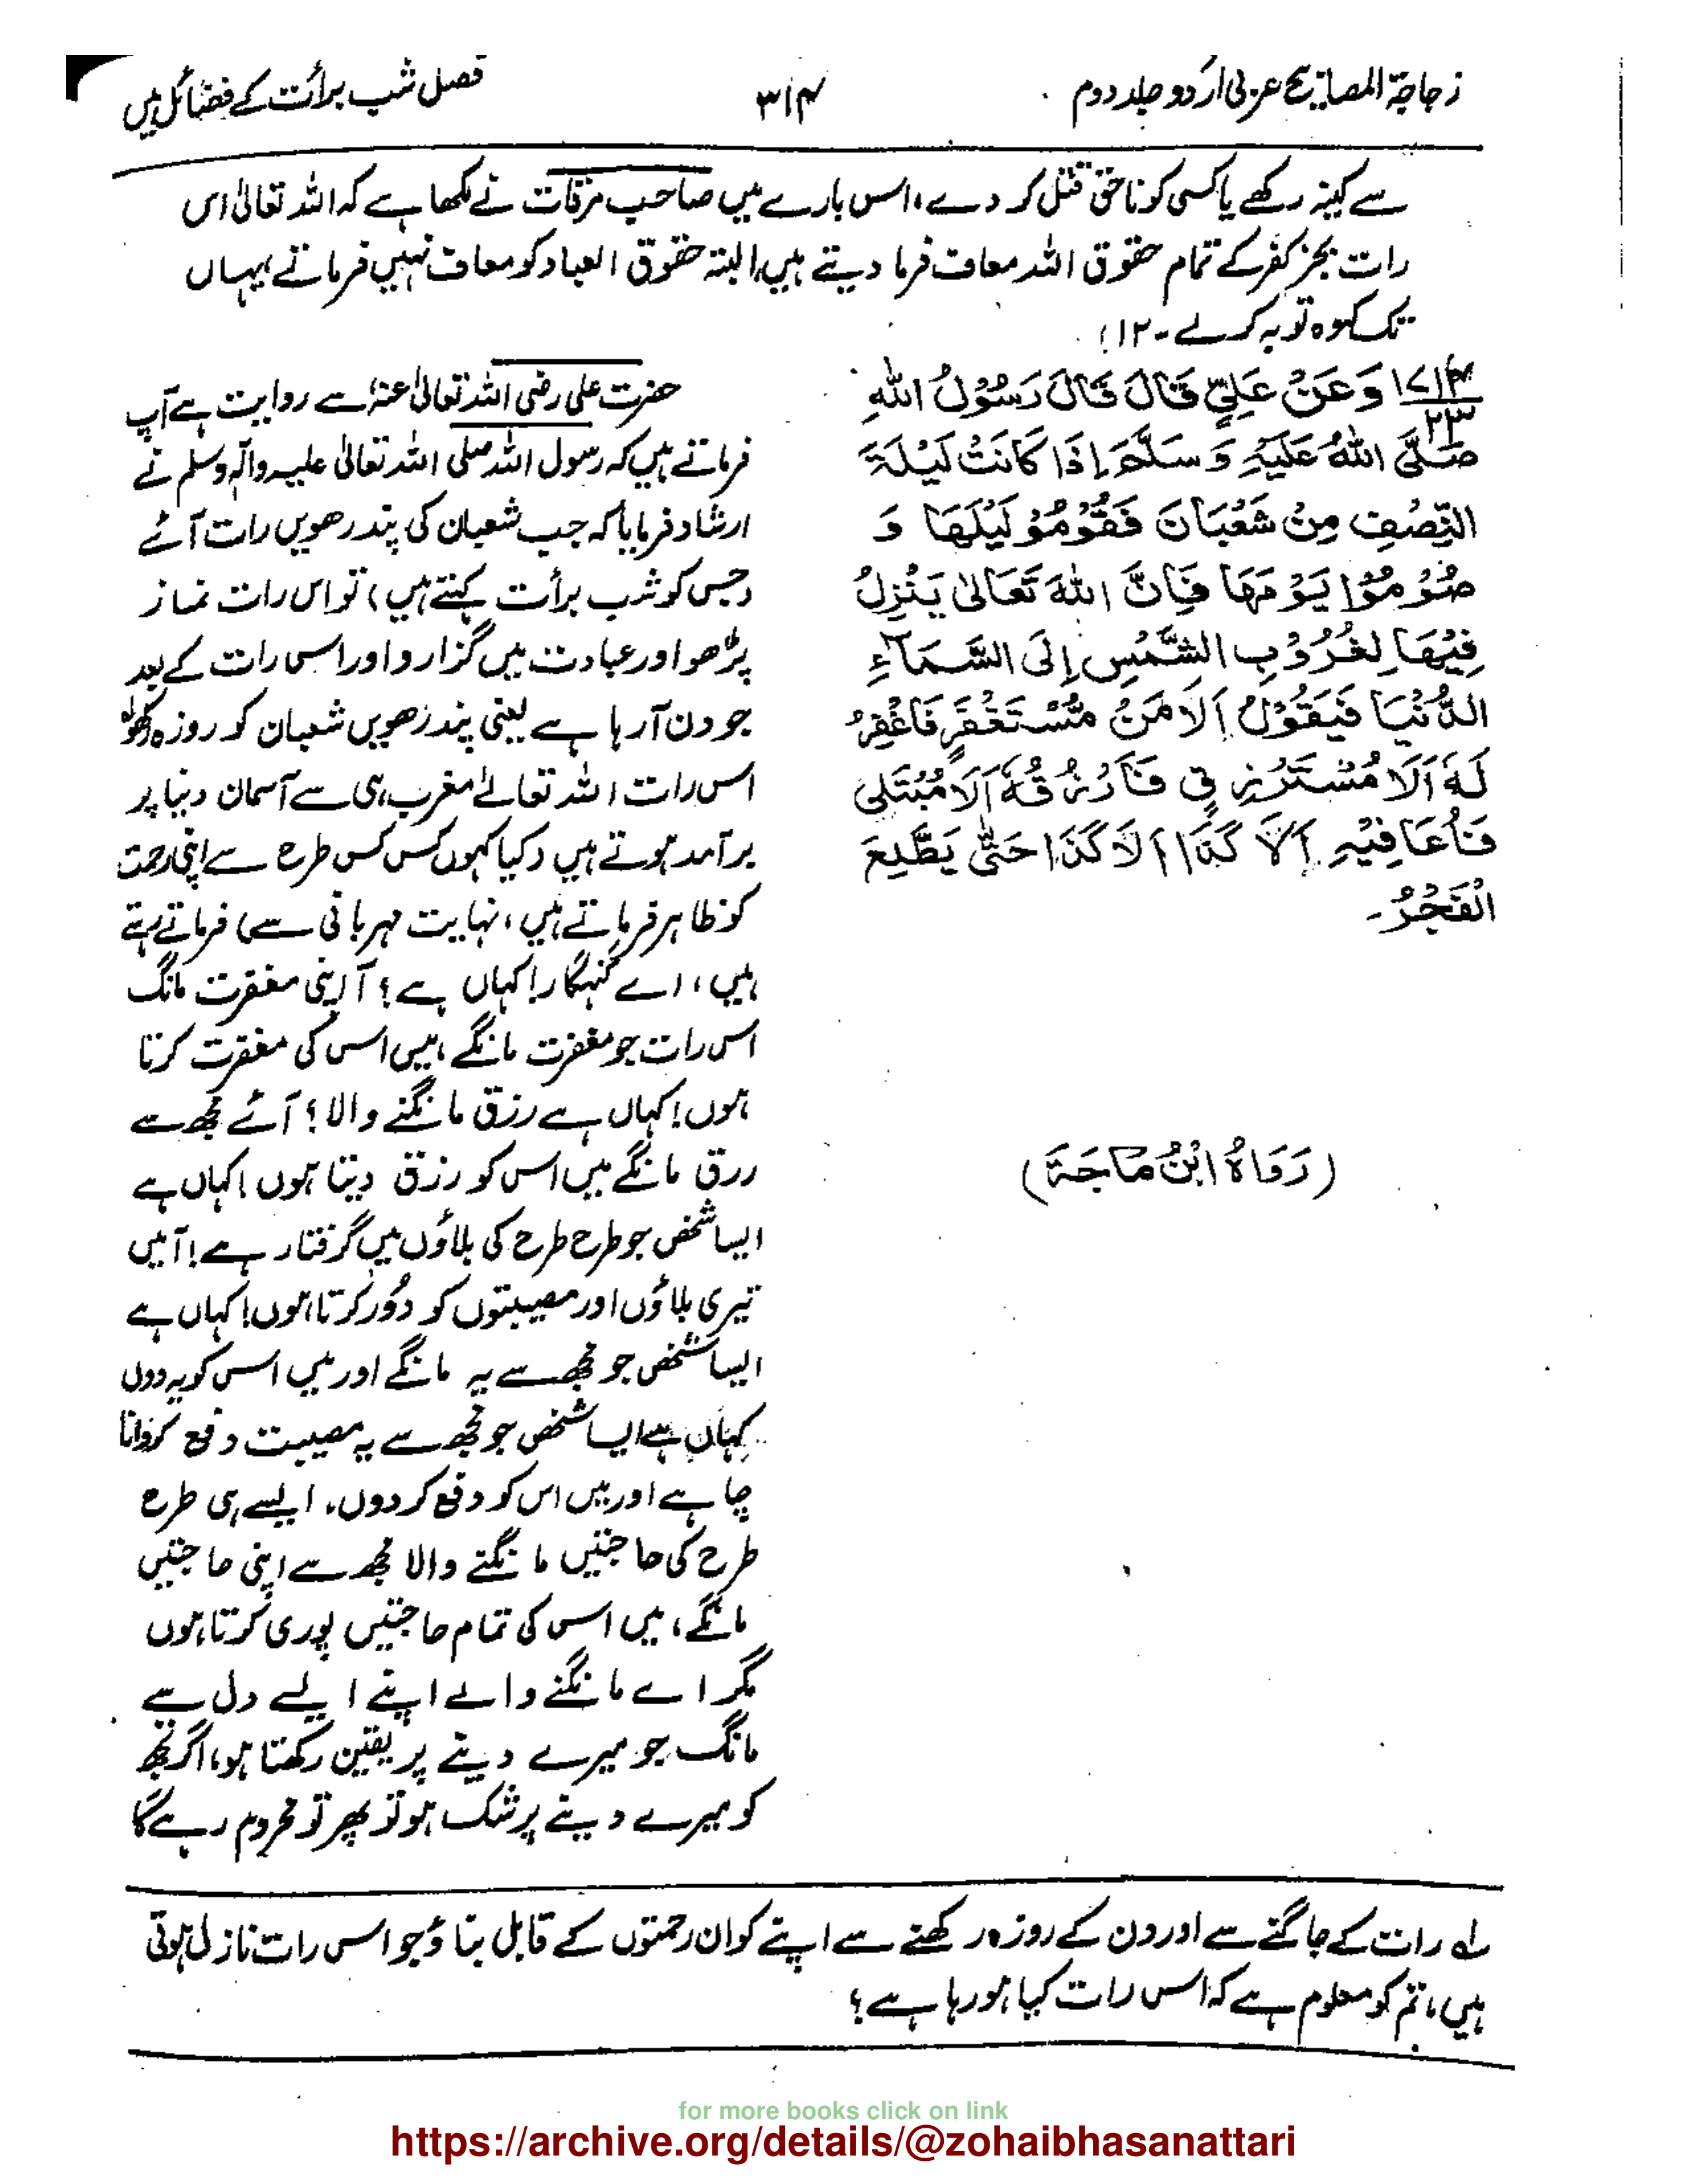 زجاجۃ المصابیح عربی اردو جلد دوم
۳۱۴
فصل شب برأت کے فضائل میں
سے کینہ رکھے یا کسی کو ناحق قتل کر دے، اس بارے میں صاحب مرقات نے لکھا ہے کہ اللہ تعالیٰ اس
رات بجز کفر کے تمام حقوق اللہ معاف فرما دیتے ہیں، البتہ حقوق العباد کو معاف نہیں فرماتے یہاں
تک کہ وہ توبہ کر لے ۔ ۱۲!
۱۷۱۴/۲۳ وَعَنْ عَلِیٍّ قَالَ قَالَ رَسُوْلُ اللّٰہِ
صَلَّی اللّٰہُ عَلَیْہِ وَسَلَّمَ اِذَا کَانَتْ لَیْلَۃَ
النِّصْفِ مِنْ شَعْبَانَ فَقُوْمُوْ لَیْلَھَا وَ
صُوْمُوْا یَوْمَھَا فَاِنَّ اللّٰہَ تَعَالٰی یَنْزِلُ
فِیْھَا لِغُرُوْبِ الشَّمْسِ اِلَی السَّمَآءِ
الدُّنْیَا فَیَقُوْلُ اَلَا مَنْ مُّسْتَغْفِرٍ فَاَغْفِرُ
لَہٗ اَلَا مُسْتَرْزِقٍ فَاَرْزُقُہٗ اَلَا مُبْتَلیً
فَاُعَافِیْہِ اَلَا کَذَا اَلَا کَذَا حَتّٰی یَطَّلِعَ
الْفَجْرُ۔
(رَوَاہُ ابْنُ مَاجَۃَ)
حضرت علی رضی اللہ تعالیٰ عنہٗ سے روایت ہے آپ
فرماتے ہیں کہ رسول اللہ صلی اللہ تعالیٰ علیہ وآلہٖ وسلم نے
ارشاد فرمایا کہ جب شعبان کی پندرھویں رات آئے
(جس کو شب برأت کہتے ہیں) تو اس رات نماز
پڑھو اور عبادت میں گزارو اور اس رات کے بعد
جو دن آرہا ہے یعنی پندرھویں شعبان کو روزہ رکھو لہ
اس رات اللہ تعالےٰ مغرب ہی سے آسمان دنیا پر
برآمد ہوتے ہیں (کیا کہوں کس کس طرح سے اپنی رحمت
کو ظاہر فرماتے ہیں، نہایت مہربانی سے) فرماتے رہتے
ہیں، اے گنہگار! کہاں ہے؟ آ اپنی مغفرت مانگ
اس رات جو مغفرت مانگے، میں اس کی مغفرت کرتا
ہوں! کہاں ہے رزق مانگنے والا؟ آئے مجھ سے
رزق مانگے میں اس کو رزق دیتا ہوں! کہاں ہے
ایسا شخص جو طرح طرح کی بلاؤں میں گرفتار ہے! آ میں
تیری بلاؤں اور مصیبتوں کو دُور کرتا ہوں! کہاں ہے
ایسا شخص جو مجھ سے یہ مانگے اور میں اس کو یہ دوں
کہاں ہے ایسا شخص جو مجھ سے یہ مصیبت دفع کروانا
چاہے اور میں اس کو دفع کردوں، ایسے ہی طرح
طرح کی حاجتیں مانگنے والا مجھ سے اپنی حاجتیں
مانگے، میں اس کی تمام حاجتیں پوری کرتا ہوں
مگر اے مانگنے والے اپنے ایسے دل سے
مانگ جو میرے دینے پر یقین رکھتا ہو، اگر تجھ
کو میرے دینے پر شک ہو تو پھر تو محروم رہے گا
لہ رات کے جاگنے سے اور دن کے روزہ رکھنے سے اپنے کو ان رحمتوں کے قابل بناؤ جو اس رات نازل ہوتی
ہیں، تم کو معلوم ہے کہ اس رات کیا ہو رہا ہے؟
for more books click on link
https://archive.org/details/@zohaibhasanattari